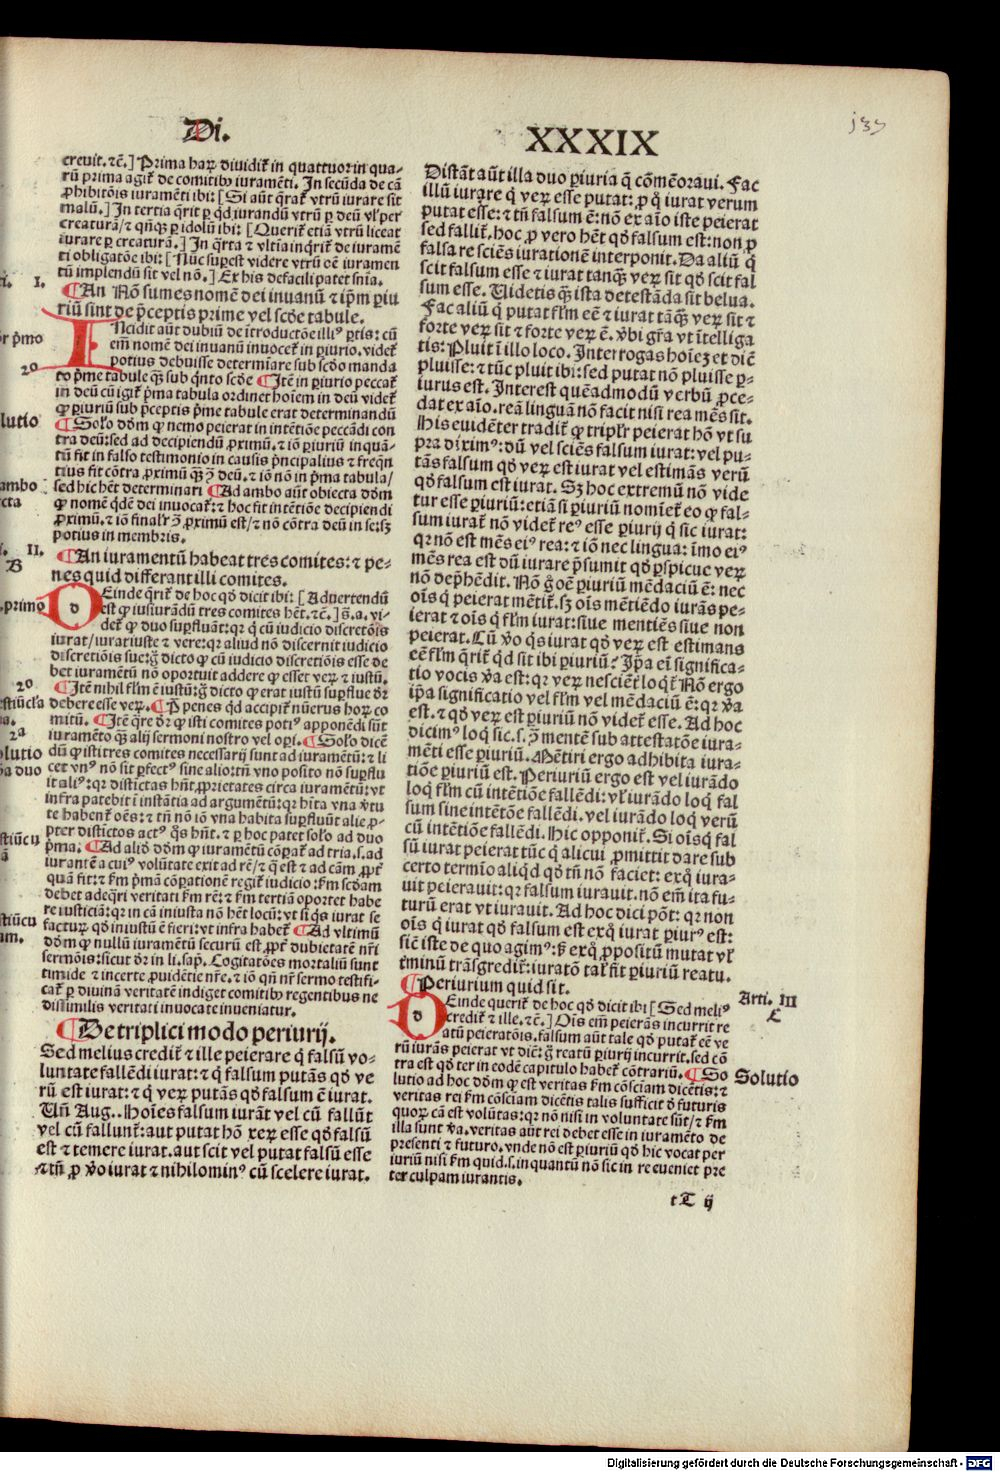 Di.
XXXIX
137
creuit. ⁊c̄.] Prima haꝝ diuidit̃ in quattuor:in qua-
rū prima agit̃ de comitibꝰ iuramēti. In secūda de cā
ꝓhibitōis iuramēti ibi: [ Si aūt q̄rat̃ vtrū iurare sit
malū.] In tertia q̄rit ꝑ qd̄ iurandū vtrū ꝑ deū vl̓ per
creaturā/⁊ qn̄qꝫ ꝑ idolū ibi: [ Querit̃ etiā vtrū liceat
iurare ꝑ creaturā.] In q̄rta ⁊ vltīa inq̄rit̃ de iuramē
ti obligatōe ibi: [ Nūc suꝑest videre vtrū oē iuramen
tū implendū sit vel nō.] Ex his defacili patet sn̄ia.
¶An Nō sumes nomē dei inuanū ⁊ ip̄m ꝑiu
riū sint de p̄ceptis prime vel scd̄e tabule.
INcidit aūt dubiū de ītroductōe illiꝰ ꝑtis: cū
em̄ nomē dei inuanū inuocet̃ in ꝑiurio. videt̃
potius debuisse determīare sub scd̄o manda
to p̄me tabule qꝫ sub q̄nto scd̄e ¶Itē in ꝑiurio peccat̃
in deū cū igit̃ p̄ma tabula ordinet hoīem in deū videt̃
ꝙ ꝑiuriū sub p̄ceptis p̄me tabule erat determinandū
¶Solo dōm ꝙ nemo peierat in intētiōe peccādi con
tra deū: sed ad decipiendū ꝓximū. ⁊ iō ꝑiuriū inquā-
tū fit in falso testimonio in causis p̄ncipalius ⁊ freq̄n
tius fit cōtra ꝓximū qꝫ ꝯ̄ deū. ⁊ iō nō in p̄ma tabula/
sed hic hēt determinari ¶Ad ambo aūt obiecta dōm
ꝙ nomē qd̄ē dei inuocat̃: ⁊ hoc fit intētiōe decipiendi
ꝓximū. ⁊ iō finalr̄ ꝯ̄ ꝓximū est/⁊ nō cōtra deū in se: sꝫ
potius in membris.
¶An iuramentū habeat tres comites: ⁊ pe-
nes quid differant illi comites.
DEinde q̄rit̃ de hoc qd̄ dicit ibi: [ Aduertendū
est ꝙ iusiurādū tres comites hēt. ⁊c̄.] s̄. a. vi-
det̃ ꝙ duo suꝑfluāt: qr q̄ cū iudicio discretōis
iurat/iurat iuste ⁊ vere: qr aliud nō discernit iudicio
discretiōis sue: ḡ dicto ꝙ cū iudicio discretiōis esse de
bet iuramētū nō oportuit addere ꝙ esset veꝝ ⁊ iustū.
¶Itē nihil flm̄ ē iustū: ḡ dicto ꝙ erat iustū suꝑflue d̄r
debere esse veꝝ. ¶P penes qd̄ accipit̃ nūerus hoꝝ co
mitū. ¶Itē q̄re d̄r ꝙ isti comites potiꝰ apponēdi sūt
iuramēto qꝫ alij sermoni nostro vel oꝑi. ¶Solo dicē
dū ꝙ isti tres comites necessarij sunt ad iuramētū: ⁊ li
cet vnꝰ nō sit ꝑfectꝰ sine alio: tn̄ vno posito nō suꝑflu
it aliꝰ: qr distictas hn̄t ꝓprietates circa iuramētū: vt
infra patebit ī instātia ad argumētū: qr hīta vna v̓tu
te habent̃ oēs: ⁊ tn̄ nō iō vna habita suꝑfluūt alie ꝓ-
pter distictos actꝰ qs̄ hn̄t. ⁊ ꝑ hoc patet solo ad duo
p̄ma. ¶Ad aliō dōm ꝙ iuramētū cōꝑat̃ ad tria. s. ad
iurantē a cuiꝰ volūtate exit ad rē/⁊ q̄ est ⁊ ad cām ꝓpt̃
quā fit: ⁊ fm̄ p̄mā cōꝑationē regit̃ iudicio: fm̄ scd̄am
debet adeq̄ri veritati fm̄ rē: ⁊ fm̄ tertiā oportet habe
re iusticiā: qr in cā iniusta nō hēt locū: vt si q̄s iurat se
facturꝝ qd̄ iniustū ē fieri: vt infra habet̃ ¶Ad vltimū
dōm ꝙ nullū iuramētū securū est ꝓpt̃ dubietatē nr̄i
sermōis: sicut d̄r in li. sap̄. Cogitatōes mortaliū sunt
timide ⁊ incerte ꝓuidētie nr̄e. ⁊ iō qn̄ nr̄ sermo testifi-
cat̃ ꝑ diuinā veritatē indiget comitibꝰ regentibus ne
dissimilis veritati inuocate inueniatur.
¶De triplici modo periurij.
Sed melius credit̃ ⁊ ille peierare q̄ falsū vo-
luntate fallēdi iurat: ⁊ q̄ falsum putās qd̄ ve
rū est iurat: ⁊ q̄ veꝝ putās qd̄ falsum ē iurat.
Un̄ Aug.. Hoīes falsum iurāt vel cū fallūt
vel cū fallunt̃: aut putat hō xeꝝ esse qd̄ falsū
est ⁊ temere iurat. aut scit vel putat falsū esse
⁊ tn̄ ꝓ v̓o iurat ⁊ nihilominꝰ cū scelere iurat.
Distāt aūt illa duo ꝑiuria q̄ cōmēoraui. Fac
illū iurare q̄ veꝝ esse putat: ꝓ q̄ iurat verum
putat esse: ⁊ tn̄ falsum ē: nō ex aīo iste peierat
sed fallit̃. hoc ꝓ vero hēt qd̄ falsum est: non ꝓ
falsa re sciēs iurationē interponit. Da aliū q̄
scit falsum esse ⁊ iurat tanqꝫ veꝝ sit qd̄ scit fal
sum esse. Uidetis qꝫ ista detestāda sit belua.
Fac aliū q̄ putat flm̄ eē ⁊ iurat tāqꝫ veꝝ sit ⁊
forte veꝝ sit ⁊ forte veꝝ ē. v̓bi gr̄a vt ītelliga
tis: Pluit ī illo loco. Interrogas hoīeꝫ et diē
pluisse: ⁊ tūc pluit ibi: sed putat nō pluisse ꝑ-
iurus est. Interest quēadmodū verbū ꝓce-
dat ex aīo. reā linguā nō facit nisi rea mēs sit.
His euidēter tradit̃ ꝙ triplr̄ peierat hō vt su
pra diximꝰ: dū vel sciēs falsum iurat: vel pu-
tās falsum qd̄ veꝝ est iurat vel estimās verū
qd̄ falsum est iurat. Sꝫ hoc extremū nō vide
tur esse ꝑiuriū: etiā si ꝑiuriū nomīet̃ eo ꝙ fal-
sum iurat̃ nō videt̃ reꝰ esse ꝑiurij q̄ sic iurat:
qr nō est mēs eiꝰ rea: ⁊ iō nec lingua: īmo eiꝰ
mēs rea est dū iurare p̄sumit qd̄ ꝑspicue veꝝ
nō dep̄hēdit. Nō ḡ oē ꝑiuriū mēdaciū ē: nec
oīs q̄ peierat mētit̃. sꝫ oīs mētiēdo iurās pe-
ierat ⁊ oīs q̄ flm̄ iurat: siue mentiēs siue non
peierat. Cū v̓o qs̄ iurat qd̄ veꝝ est estimans
eē flm̄ q̄rit̃ qd̄ sit ibi ꝑiuriū? Ip̄a em̄ significa-
tio vocis v̓a est: qr veꝝ nesciēr loqt̃ Nō ergo
ip̄a significatio vel flm̄ vel mēdaciū ē: qr v̓a
est. ⁊ qd̄ veꝝ est ꝑiuriū nō videt̃ esse. Ad hoc
dicimꝰ loq̄ sic. s. ꝯ̄ mentē sub attestatōe iura-
mēti esse ꝑiuriū. Mētiri ergo adhibita iura-
tiōe ꝑiuriū est. Periuriū ergo est vel iurādo
loq̄ flm̄ cū intētiōe fallēdi: vl̓ iurādo loq̄ fal
sum sine intētōe fallēdi. vel iurādo loq̄ verū
cū intētiōe fallēdi. Hic opponit̃. Si oīsq̄ fal
sū iurat peierat tūc q̄ alicui ꝓmittit dare sub
certo termīo aliqd̄ qd̄ tn̄ nō faciet: exq̄ iura-
uit peierauit: qr falsum iurauit. nō em̄ ita fu-
turū erat vt iurauit. Ad hoc dici pōt: qr non
oīs q̄ iurat qd̄ falsum est exq̄ iurat ꝑiurꝰ est:
siē iste de quo agimꝰ: sꝫ exq̄ ꝓpositū mutat vl̓
t̓minū trāsgredit̃: iuratō tal̓ fit ꝑiuriū reatu.
¶Periurium quid sit.
DEinde querit̃ de hoc qd̄ dicit ibi [ Sed meliꝰ
credit̃ ⁊ ille. ⁊c̄.] Oīs em̄ peierās incurrit re
atū peieratōis. falsum aūt tale qd̄ putat̃ eē ve
rū iurās peierat vt dic̄: ḡ reatū ꝑiurij incurrit. sed cō
tra est qd̄ ter in codē capitulo habet̃ cōtrariū. ¶So
lutio ad hoc dōm ꝙ est veritas fm̄ cōsciam dicētis: ⁊
veritas rei fm̄ cōsciam dicētis talis sufficit d̓ futuris
quoꝝ cā est volūtas: qr nō nisī in voluntate sūt/⁊ fm̄
illa sunt v̓a. veritas aūt rei debet esse in iuramēto de
presenti ⁊ futuro. vnde nō est ꝑiuriū qd̄ hic vocat per
iuriū nisi fm̄ quid. s. inquantū nō sic in re eueniet pre
ter culpam iurantis.
tT ij
I.
20
II.
B
primo
20
2a
Arti. III
E
Solutio
Digitalisierung gefördert durch die Deutsche Forschungsgemeinschaft - DFG